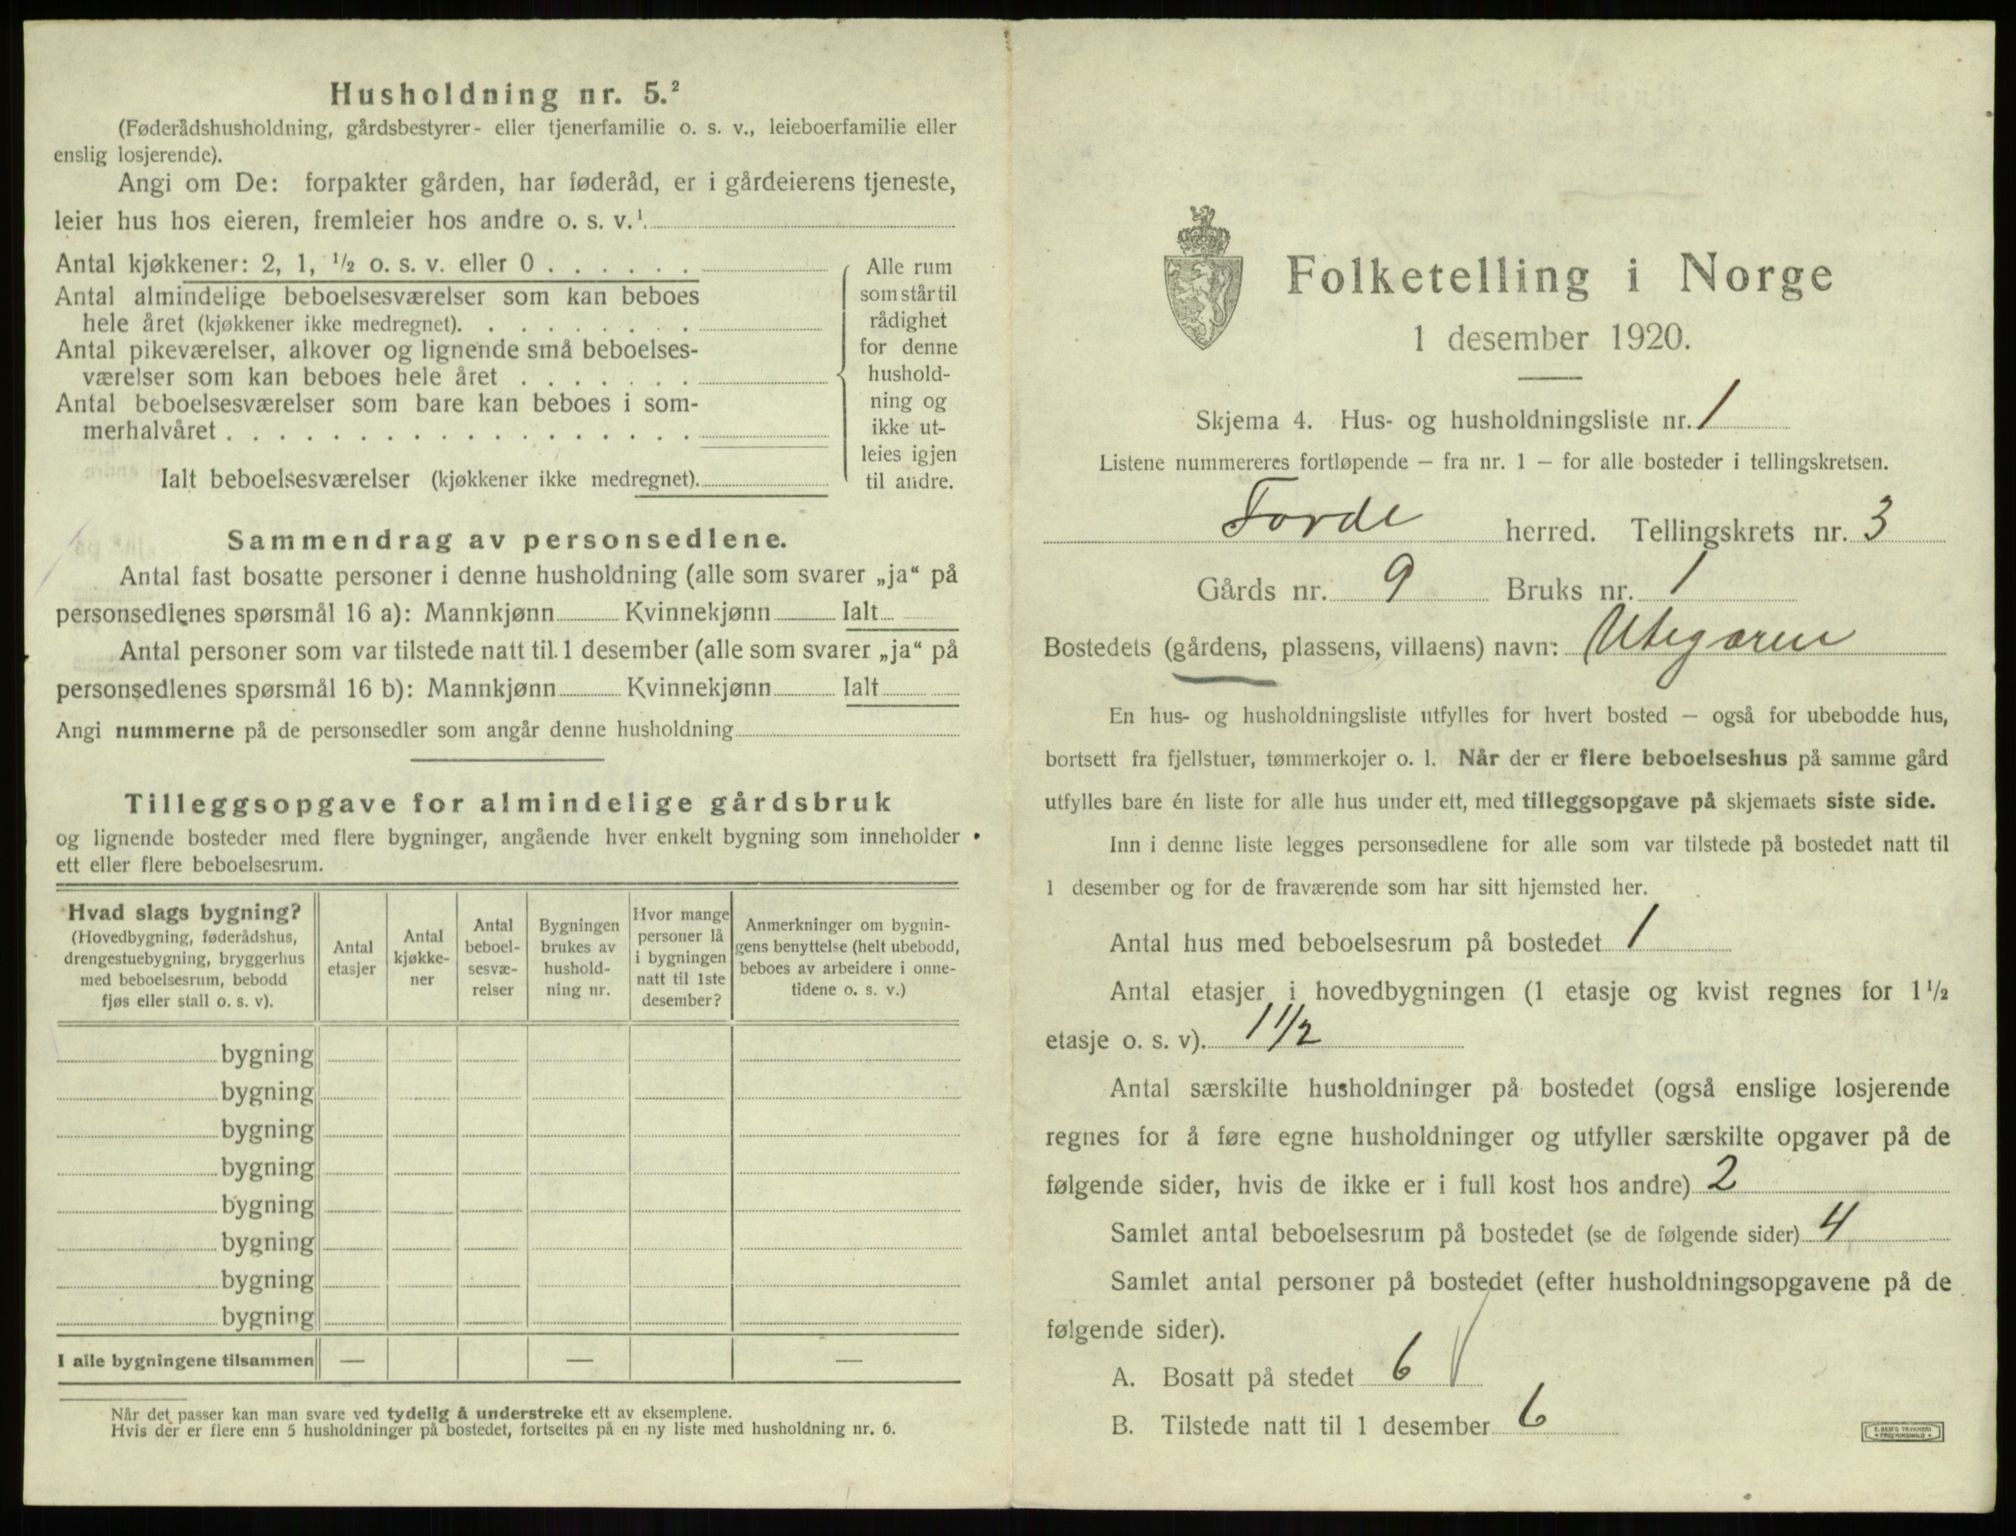 Husholdning nr. 5.²
(Føderådshusholdning, gårdsbestyrer- eller tjenerfamilie o. s. v., leieboerfamilie eller
enslig losjerende).
Angi om De: forpakter gården, har føderåd, er i gårdeierens tjeneste,
leier hus hos eieren, fremleier hos andre o. s. v.¹
Antal kjøkkener: 2, 1, ½ o. s. v. eller 0 . . . . . .
Antal almindelige beboelsesværelser som kan beboes
hele året (kjøkkener ikke medregnet). . . . . . . . .
Antal pikeværelser, alkover og lignende små beboelses-
værelser som kan beboes hele året . . . . . . .
Antal beboelsesværelser som bare kan beboes i som-
merhalvåret . . . . . . . . . . . . . . . . . .
Ialt beboelsesværelser (kjøkkener ikke medregnet).
Alle rum
som står til
rådighet
for denne
hushold-
ning og
ikke ut-
leies igjen
til andre.
Sammendrag av personsedlene.
Antal fast bosatte personer i denne husholdning (alle som svarer „ja“ på
personsedlenes spørsmål 16 a): Mannkjønn Kvinnekjønn Ialt
Antal personer som var tilstede natt til 1 desember (alle som svarer „ja“ på
personsedlenes spørsmål 16 b): Mannkjønn Kvinnekjønn Ialt
Angi nummerne på de personsedler som angår denne husholdning
Tilleggsopgave for almindelige gårdsbruk
og lignende bosteder med flere bygninger, angående hver enkelt bygning som inneholder
ett eller flere beboelsesrum.
Hvad slags bygning?
(Hovedbygning, føderådshus,
drengestuebygning, bryggerhus
med beboelsesrum, bebodd
fjøs eller stall o. s. v).
Antal
etasjer
Antal
kjøkke-
ner
Antal
beboel-
sesvæ-
relser
Bygningen
brukes av
hushold-
ning nr.
Hvor mange
personer lå
i bygningen
natt til 1ste
desember?
Anmerkninger om bygnin-
gens benyttelse (helt ubebodd,
beboes av arbeidere i onne-
tidene o. s. v.)
bygning
bygning
bygning
bygning
bygning
bygning
bygning
bygning
I alle bygningene tilsammen — — —
Når det passer kan man svare ved tydelig å understreke ett av eksemplene.
Hvis der er flere enn 5 husholdninger på bostedet, fortsettes på en ny liste med husholdning nr. 6.
Folketelling i Norge
1 desember 1920.
Skjema 4. Hus- og husholdningsliste nr. 1
Listene nummereres fortløpende – fra nr. 1 – for alle bosteder i tellingskretsen.
Førde herred. Tellingskrets nr. 3
Gårds nr. 9 Bruks nr. 1
Bostedets (gårdens, plassens, villaens) navn: Utigaren
En hus- og husholdningsliste utfylles for hvert bosted – også for ubebodde hus,
bortsett fra fjellstuer, tømmerkojer o. l. Når der er flere beboelseshus på samme gård
utfylles bare én liste for alle hus under ett, med tilleggsopgave på skjemaets siste side.
Inn i denne liste legges personsedlene for alle som var tilstede på bostedet natt til
1 desember og for de fraværende som har sitt hjemsted her.
Antal hus med beboelsesrum på bostedet 1
Antal etasjer i hovedbygningen (1 etasje og kvist regnes for 1½
etasje o. s. v). 1 1/2
Antal særskilte husholdninger på bostedet (også enslige losjerende
regnes for å føre egne husholdninger og utfyller særskilte opgaver på de
følgende sider, hvis de ikke er i full kost hos andre) 2
Samlet antal beboelsesrum på bostedet (se de følgende sider) 4
Samlet antal personer på bostedet (efter husholdningsopgavene på de
følgende sider).
A. Bosatt på stedet 6
B. Tilstede natt til 1 desember 6